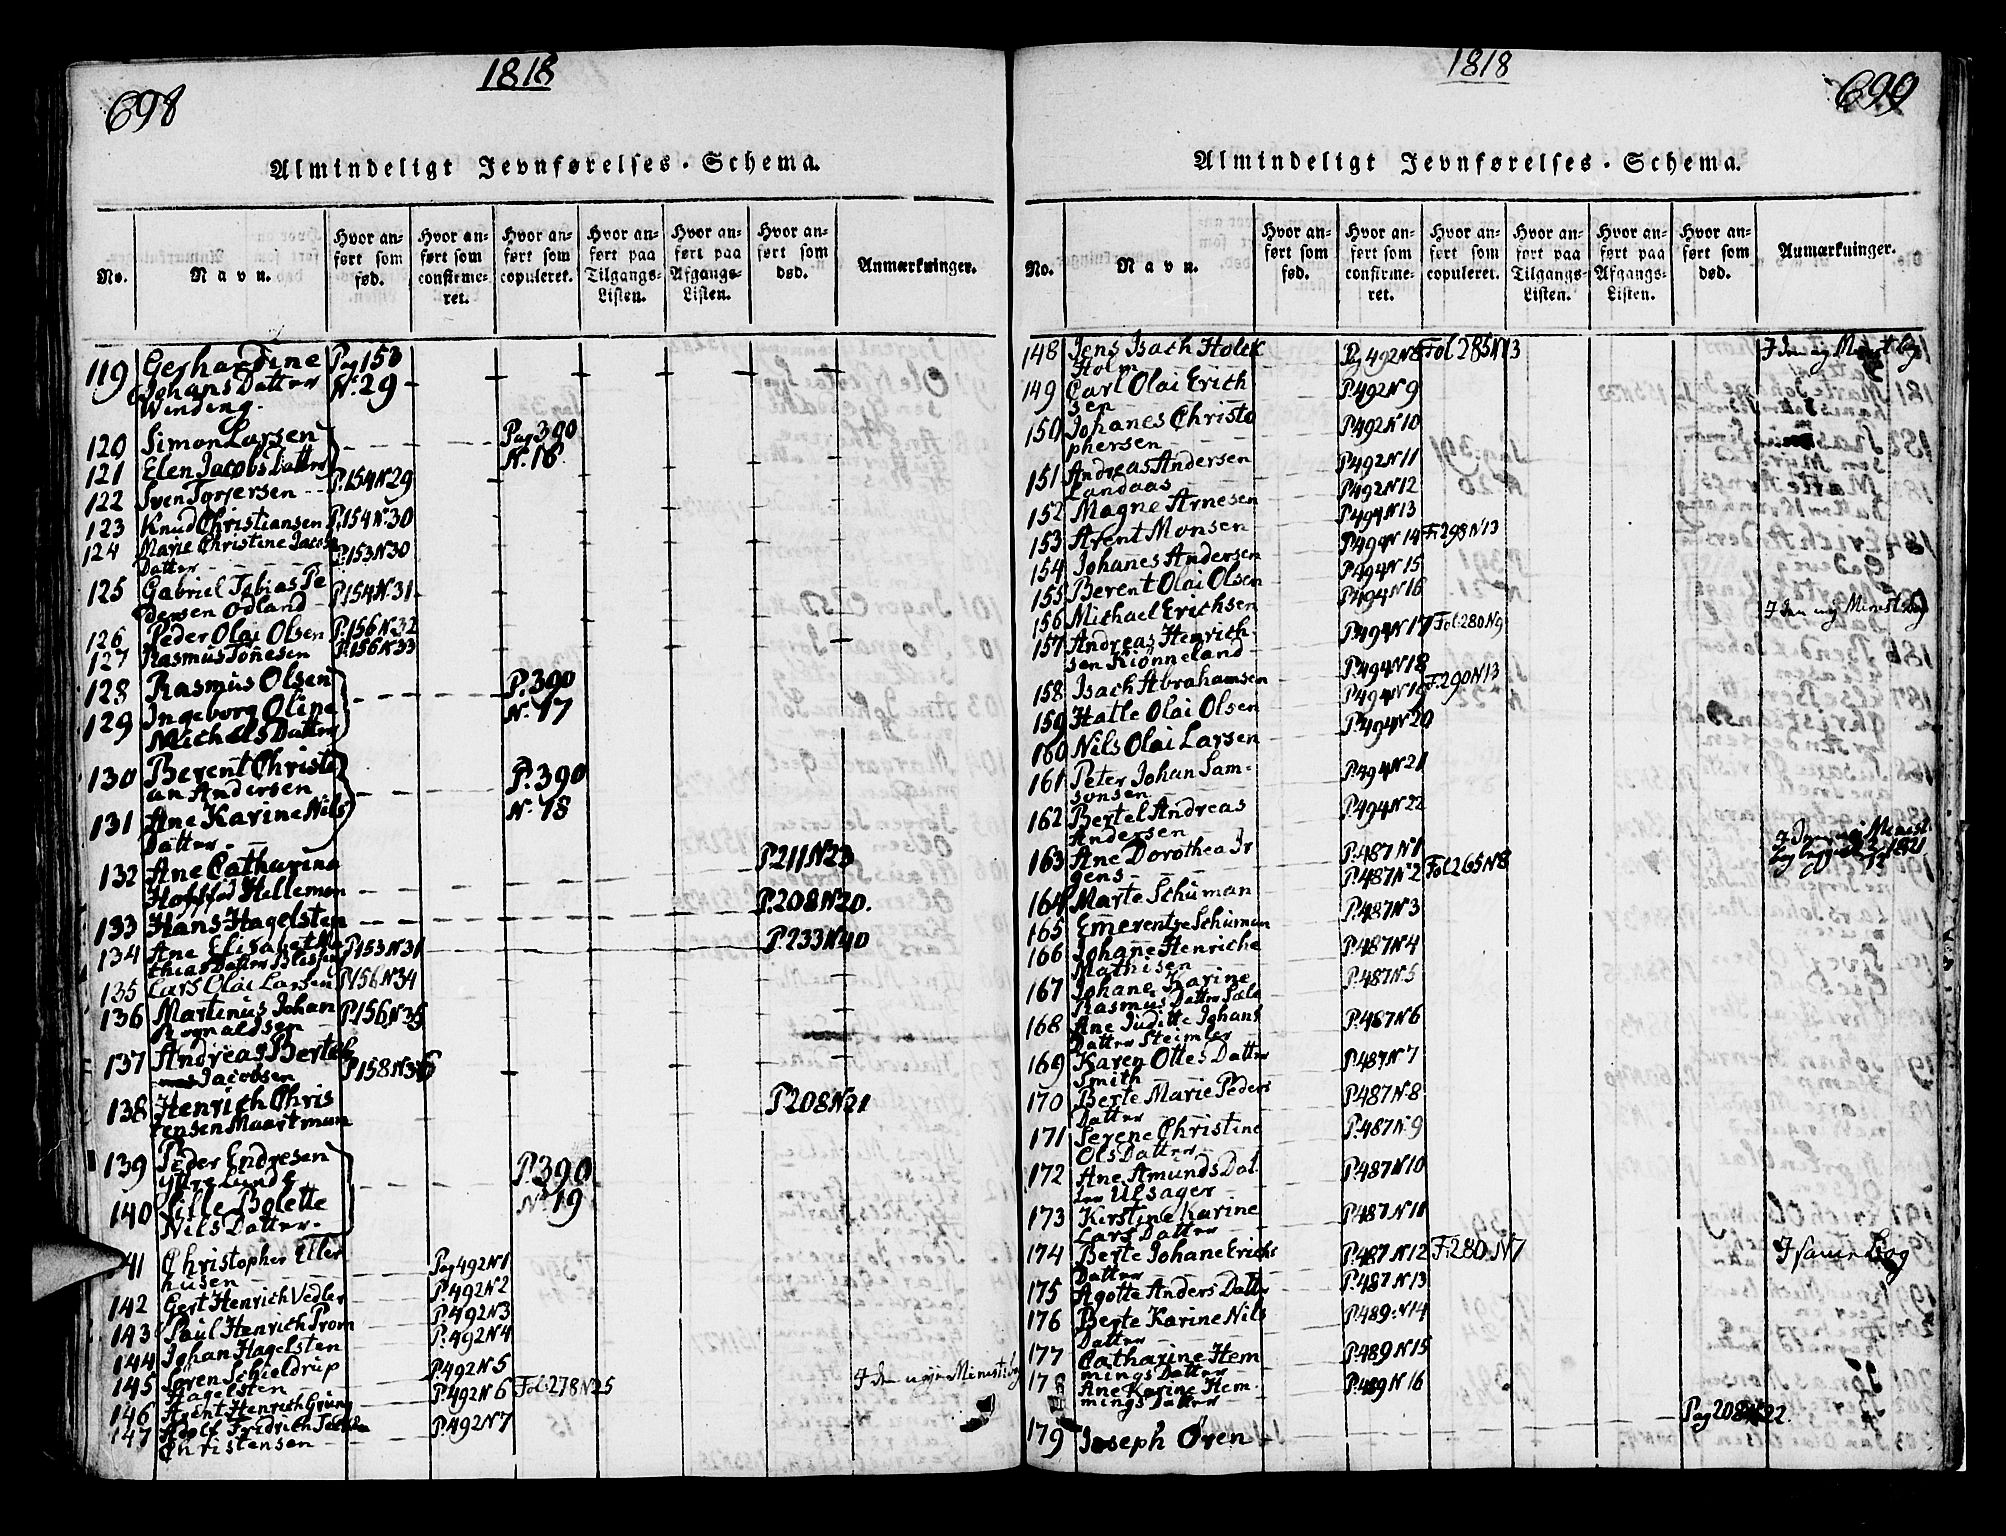 698
1818
Almindeligt Jevnførelses-Schema.
No.
Navn.
Hvor an-
ført som
fød.
Hvor an-
ført som
confirme-
ret.
Hvor an-
ført som
copuleret.
Hvor an-
ført paa
Tilgangs-
Listen.
Hvor an-
ført paa
Afgangs-
Listen.
Hvor an-
ført som
død.
Anmærkninger.
119 Gerhardine Pag 153
Johans Datter N. 29
Winding.
120 Simon Larsen Pag 390
121 Elen Jacobs Datter N. 16
122 Sven Torjersen P.154 N 29
123 Knud Christiansen P.154 N. 30
124 Marie Christine Jacobs
Datter P.153 N 30
125 Gabriel Tobias Pe P.154 N. 31
dersen Odland
126 Peder Olai Olsen P.156 N. 32
127 Rasmus Tönesen P.156 N. 33
128 Rasmus Olsen P. 390
129 Ingeborg Oline N. 17
Michels Datter
130 Berent Christi P. 390
an Andersen
131 Ane Karine Nils N. 18
Datter
132 Ane Catharina P.211 N 23
Hoffad Helleman
133 Hans Hagelsten P.208 N 20.
134 Ane Elisabet Ma P.153 N 31 P.233 N 40
thias Datter
135 Lars Olai Larsen P.156 N 34
136 Martinus Johan P.156 N 35
Rognaldsen
137 Andreas Bertel
Jacobsen P.158 N 36
138 Henrich Chris P.208 N 21
tensen Maartman
139 Peder Endresen P. 390
Yttrelunde
140 Sille Bolette N. 19
Nils Datter
141 Christopher Eller Pag 492 N 1
husen
142 Gert Henrich Vedler P. 492 N 2
143 Paul Henrich Prom P. 492 N 3
144 Johan Hagelsten P. 492 N 4
145 Søren Schieldrup P. 492 N 5
Hagelsten
146 Arent Henrich Grung P. 492 N 6 Fol: 278 N 25 I den nye Minist. bog
147 Adolf Fridrich P. 492 N 7
Christensen
699
1818
Almindeligt Jevnførelses-Schema.
No.
Navn.
Hvor an-
ført som
fød.
Hvor an-
ført som
confirme-
ret.
Hvor an-
ført som
copuleret.
Hvor an-
ført paa
Tilgangs-
Listen.
Hvor an-
ført paa
Afgangs-
Listen.
Hvor an-
ført som
død.
Anmærkninger.
148 Jens Isach Holck Pag 492 N 8 Fol 285 N 13 I den ny Minist bog
Holm
149 Carl Olai Erich P.492 N 9
sen
150 Johanes Christo P.492 N 10
phersen
151 Andreas Andersen P.492 N 11
Landaas
152 Magne Arnesen P.492 N 12
153 Arent Monsen P.494 N 13
154 Johanes Andersen P.494 N 14 F. 298 N 13
155 Berent Olai Olsen P.494 N 15
156 Michael Erichsen P.494 N 16 I den ny Minist bog
157 Andreas Henrich P.494 N 17 Fol. 280 N 9
sen Kiönneland
158 Isach Abrahamsen P.494 N 18
159 Hatle Olai Olsen P.494 N 19 F. 290 N 13
160 Nils Olai Larsen P.494 N 20
161 Peter Johan Sam- P.494 N 21
sonsen
162 Bertel Andreas P.494 N 22
Andersen
163 Ane Dorothea Jr P.487 N 1
gens
164 Marte Schuman P.487 N 2 Fol 265 N 8
165 Emerentze Schuman P.487 N 3
166 Johane Henriche P.487 N 4
Mathisen
167 Johane Karine P.487 N. 5
Rasmus Datter
168 Ane Juditte Johans P.487 N 6
Datter Steimler
169 Karen Ottes Datter P.487 N 7
Smith
170 Berte Marie Peders P.487 N. 8
Datter
171 Serene Christine P.487 N. 9
Ols Datter
172 Ane Amunds Dat P.487 N 10
ter Ulsager
173 Kirstine Karine P.487 N 11
Lars Datter
174 Berte Johane Erichs P.487 N 12 F. 280 N 7 I samme Bog
Datter
175 Agotte Anders Datter P.487 N 13
176 Berte Karine Nils P.489 N 14
Datter
177 Catharine Hem P.489 N 15
mings Datter
178 Ane Karine Hem- P.489 N 16
mings Datter
179 Joseph Øren Pag 208 N 22.